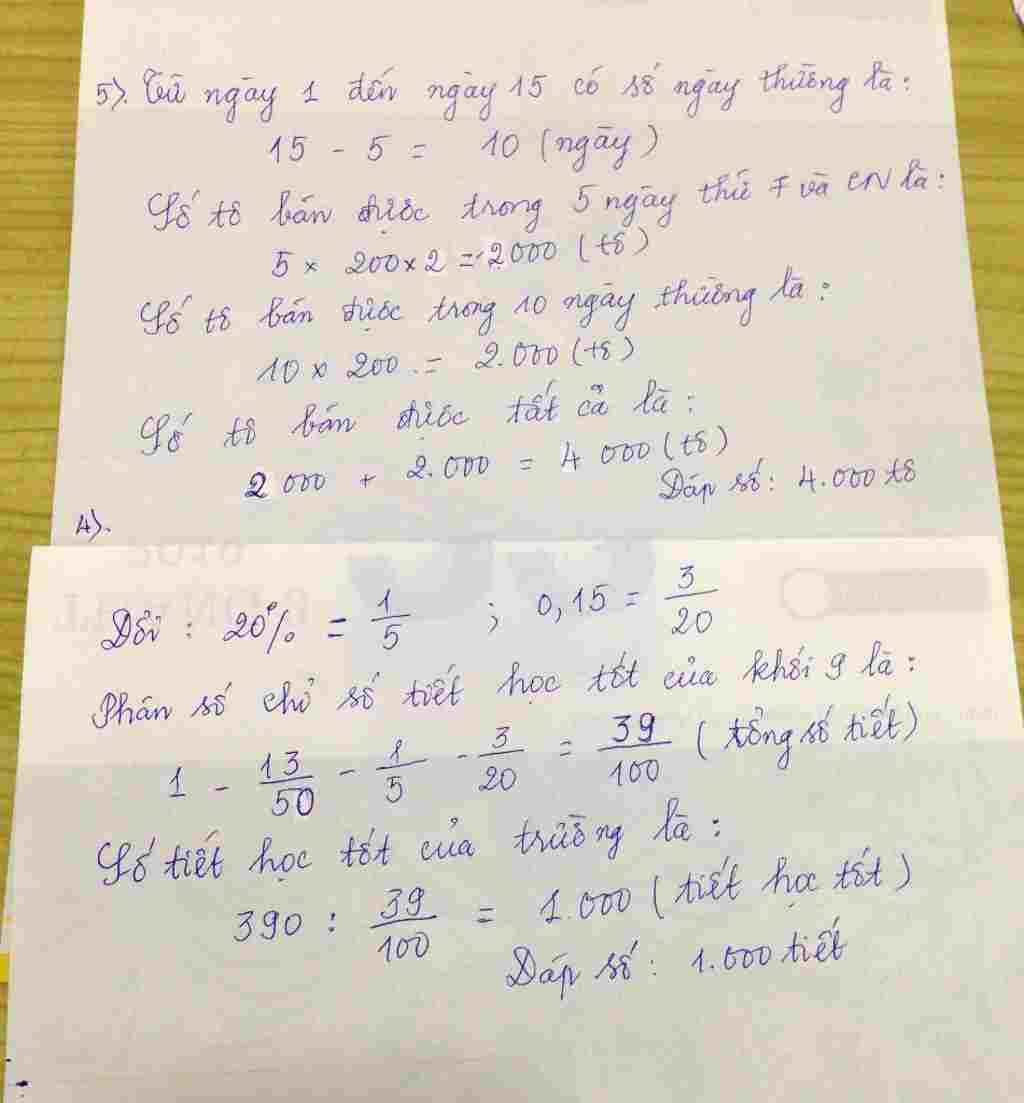 5). Từ ngày 1 đến ngày 15 có số ngày thường là:
15 - 5 = 10 (ngày)
Số tô bán được trong 5 ngày thứ 7 và CN là:
5 × 200 × 2 = 2000 (tô)
Số tô bán được trong 10 ngày thường là:
10 × 200 = 2.000 (tô)
Số tô bán được tất cả là:
2 000 + 2.000 = 4 000 (tô)
Đáp số: 4.000 tô
4).
Đổi: 20% = 1/5 ; 0,15 = 3/20
Phân số chỉ số tiết học tốt của khối 9 là:
1 - 13/50 - 1/5 - 3/20 = 39/100 (tổng số tiết)
Số tiết học tốt của trường là:
390 : 39/100 = 1.000 (tiết học tốt)
Đáp số: 1.000 tiết